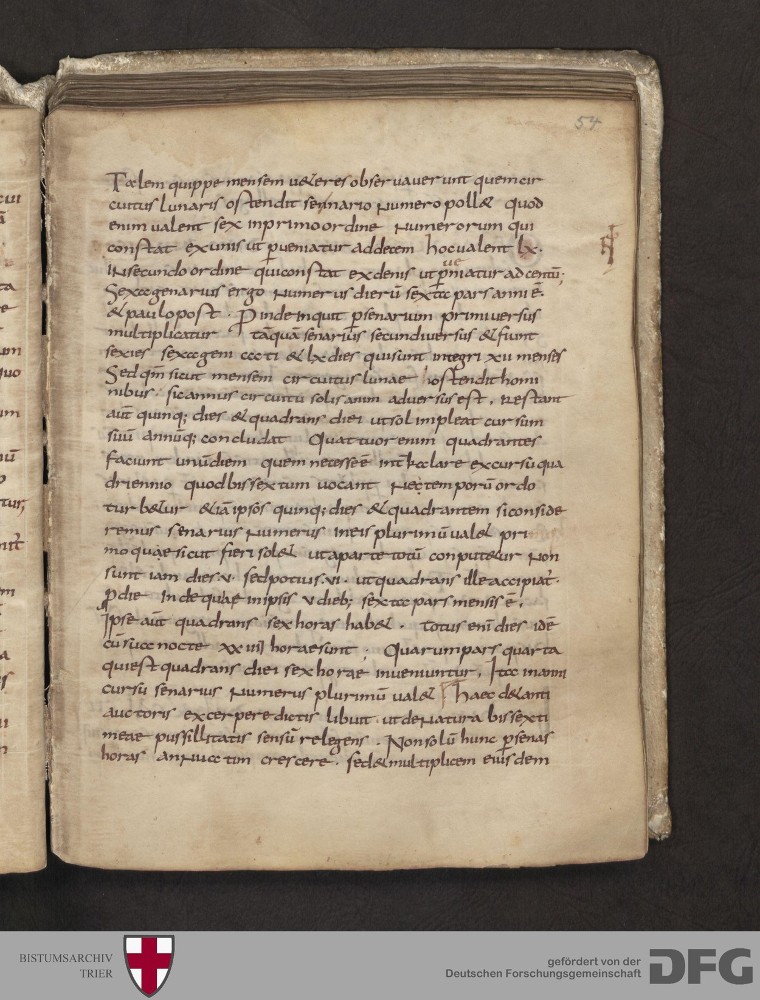 54
Talem quippe mensem ueteres obseruauerunt quem cir
cuitus lunaris ostendit senario numero pollet quod
enim ualent sex in primo ordine numerorum qui
constat ex unis ut ꝑueniatur ad decem hoc ualent lx.
in secundo ordine qui constat ex denis ut ꝑueniatur ad centū;
Sexagenarius ergo numerus dierū sexta pars anni ē.
& paulo post. Proinde inquit ꝑ senarium primi uersus
multiplicatur tāquā senarius secundi uersus & fiunt
sexies sexageni ccc ti & lx dies qui sunt integri xii menses
Sed qm̄ sicut mensem circuitus lunae ostendit homi
nibus. sic annus circuitu solis animaduersus est. Restant
aūt quinq; dies & quadrans diei ut sol impleat cursum
suū annūq; concludat Quattuor enim quadrantes
faciunt unū diem quem necesse ē intercalare excursu qua
driennio quod bissextum uocant Ne temporū ordo
turbetur & iā ipsos quinq; dies & quadrantem si conside
remus senarius numerus in eis plurimū ualet pri
mo quae sicut fieri solet ut a parte totū conputetur non
sunt iam dies .v. sed potius .vi. ut quadrans ille accipiat
ꝓ die Inde quae in ipsis v dieb; sexta pars mensis ē.
Ipse aūt quadrans sex horas habet. totus enī dies id ē
cū sua nocte xxiiii horae sunt; Quarum pars quarta
qui est quadrans diei sex horae inueniuntur. Ita in anni
cursu senarius numerus plurimū ualet Haec de tanti
auctoris excerpere dictis libuit. ut de natura bissexti
meae pussillitatis sensū relegens. Non solū hunc ꝑ senas
horas annuatim crescere. sed & multiplicem eiusdem
BISTUMSARCHIV
TRIER
gefördert von der
Deutschen Forschungsgemeinschaft
DFG